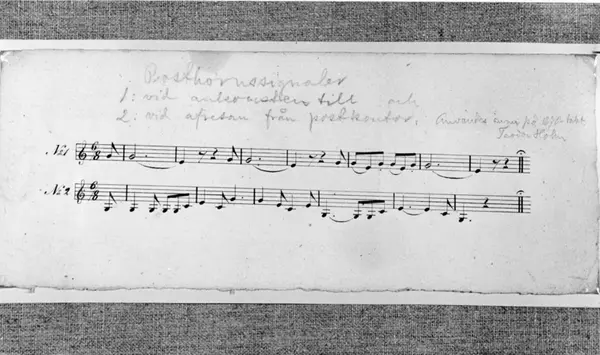 Posthornssignaler
1: vid ankomsten till och
2: vid afresan från postkontor. (Användes ännu på
No 1
No 2